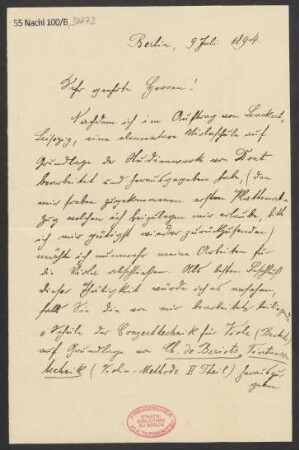 55 Nachl 100/B,
Berlin, 9 Juli 1894.
Sehr geehrte Herren!
Nachdem ich im Auftrag von Leuckart,
Leipzig, eine elementare Violaschule auf
Grundlage der Studienwerke von Dont
bearbeitet und herausgegeben habe, (den
mir soeben zugekommenen ersten Plattenab-
zug welchen ich beizulegen mir erlaube, bitte
ich mir gütigst wieder zurückzusenden)
möchte ich nunmehr meine Arbeiten für
die Viola abschliessen. Als besten Abschluß
dieser Thätigkeit würde ich es ansehen,
falls Sie die von mir bearbeitete
„Schule der Conzerttechnik für Viola (Bratsche)
auf Grundlage von Ch. de Beriots, Virtuosen
technik (Violin-Methode II Theil) herauszu-
geben
STAATS-
BIBLIOTHEK
ZU BERLIN